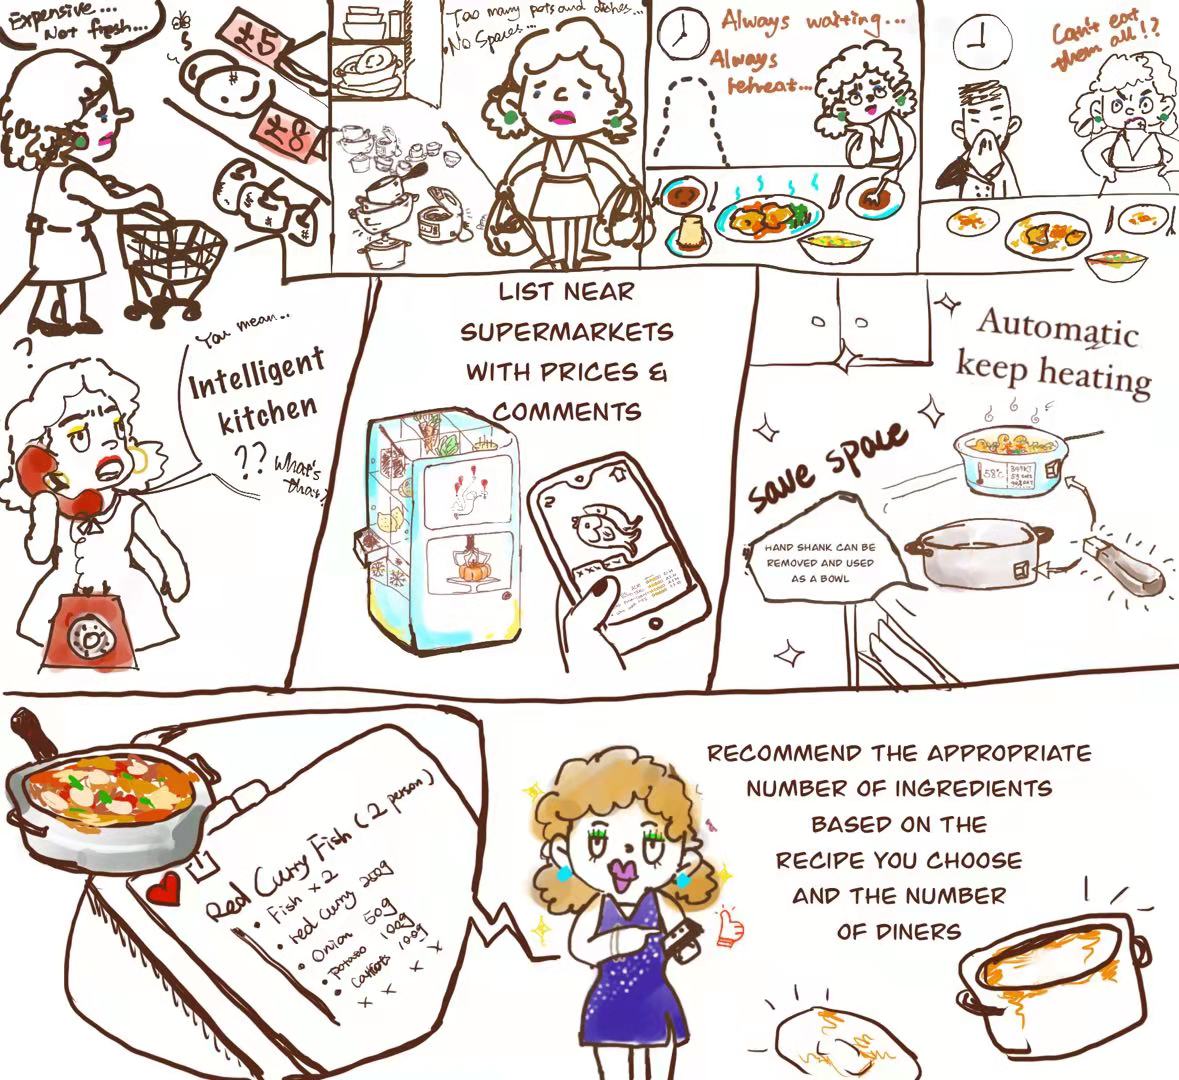 Expensive...
Not fresh...
£5
£8
Too many pots and dishes...
No Spaces...
Always waiting...
Always
reheat...
Can't eat
them all!?
?
You mean...
Intelligent
kitchen
?? What's
that?
LIST NEAR
SUPERMARKETS
WITH PRICES &
COMMENTS
Automatic
keep heating
save space
58°C
HAND SHANK CAN BE
REMOVED AND USED
AS A BOWL
Red Curry Fish (2 person)
• Fish x2
• red curry 200g
• Onion 50g
• potato 100g
• carrots 100g
x x x x
RECOMMEND THE APPROPRIATE
NUMBER OF INGREDIENTS
BASED ON THE
RECIPE YOU CHOOSE
AND THE NUMBER
OF DINERS